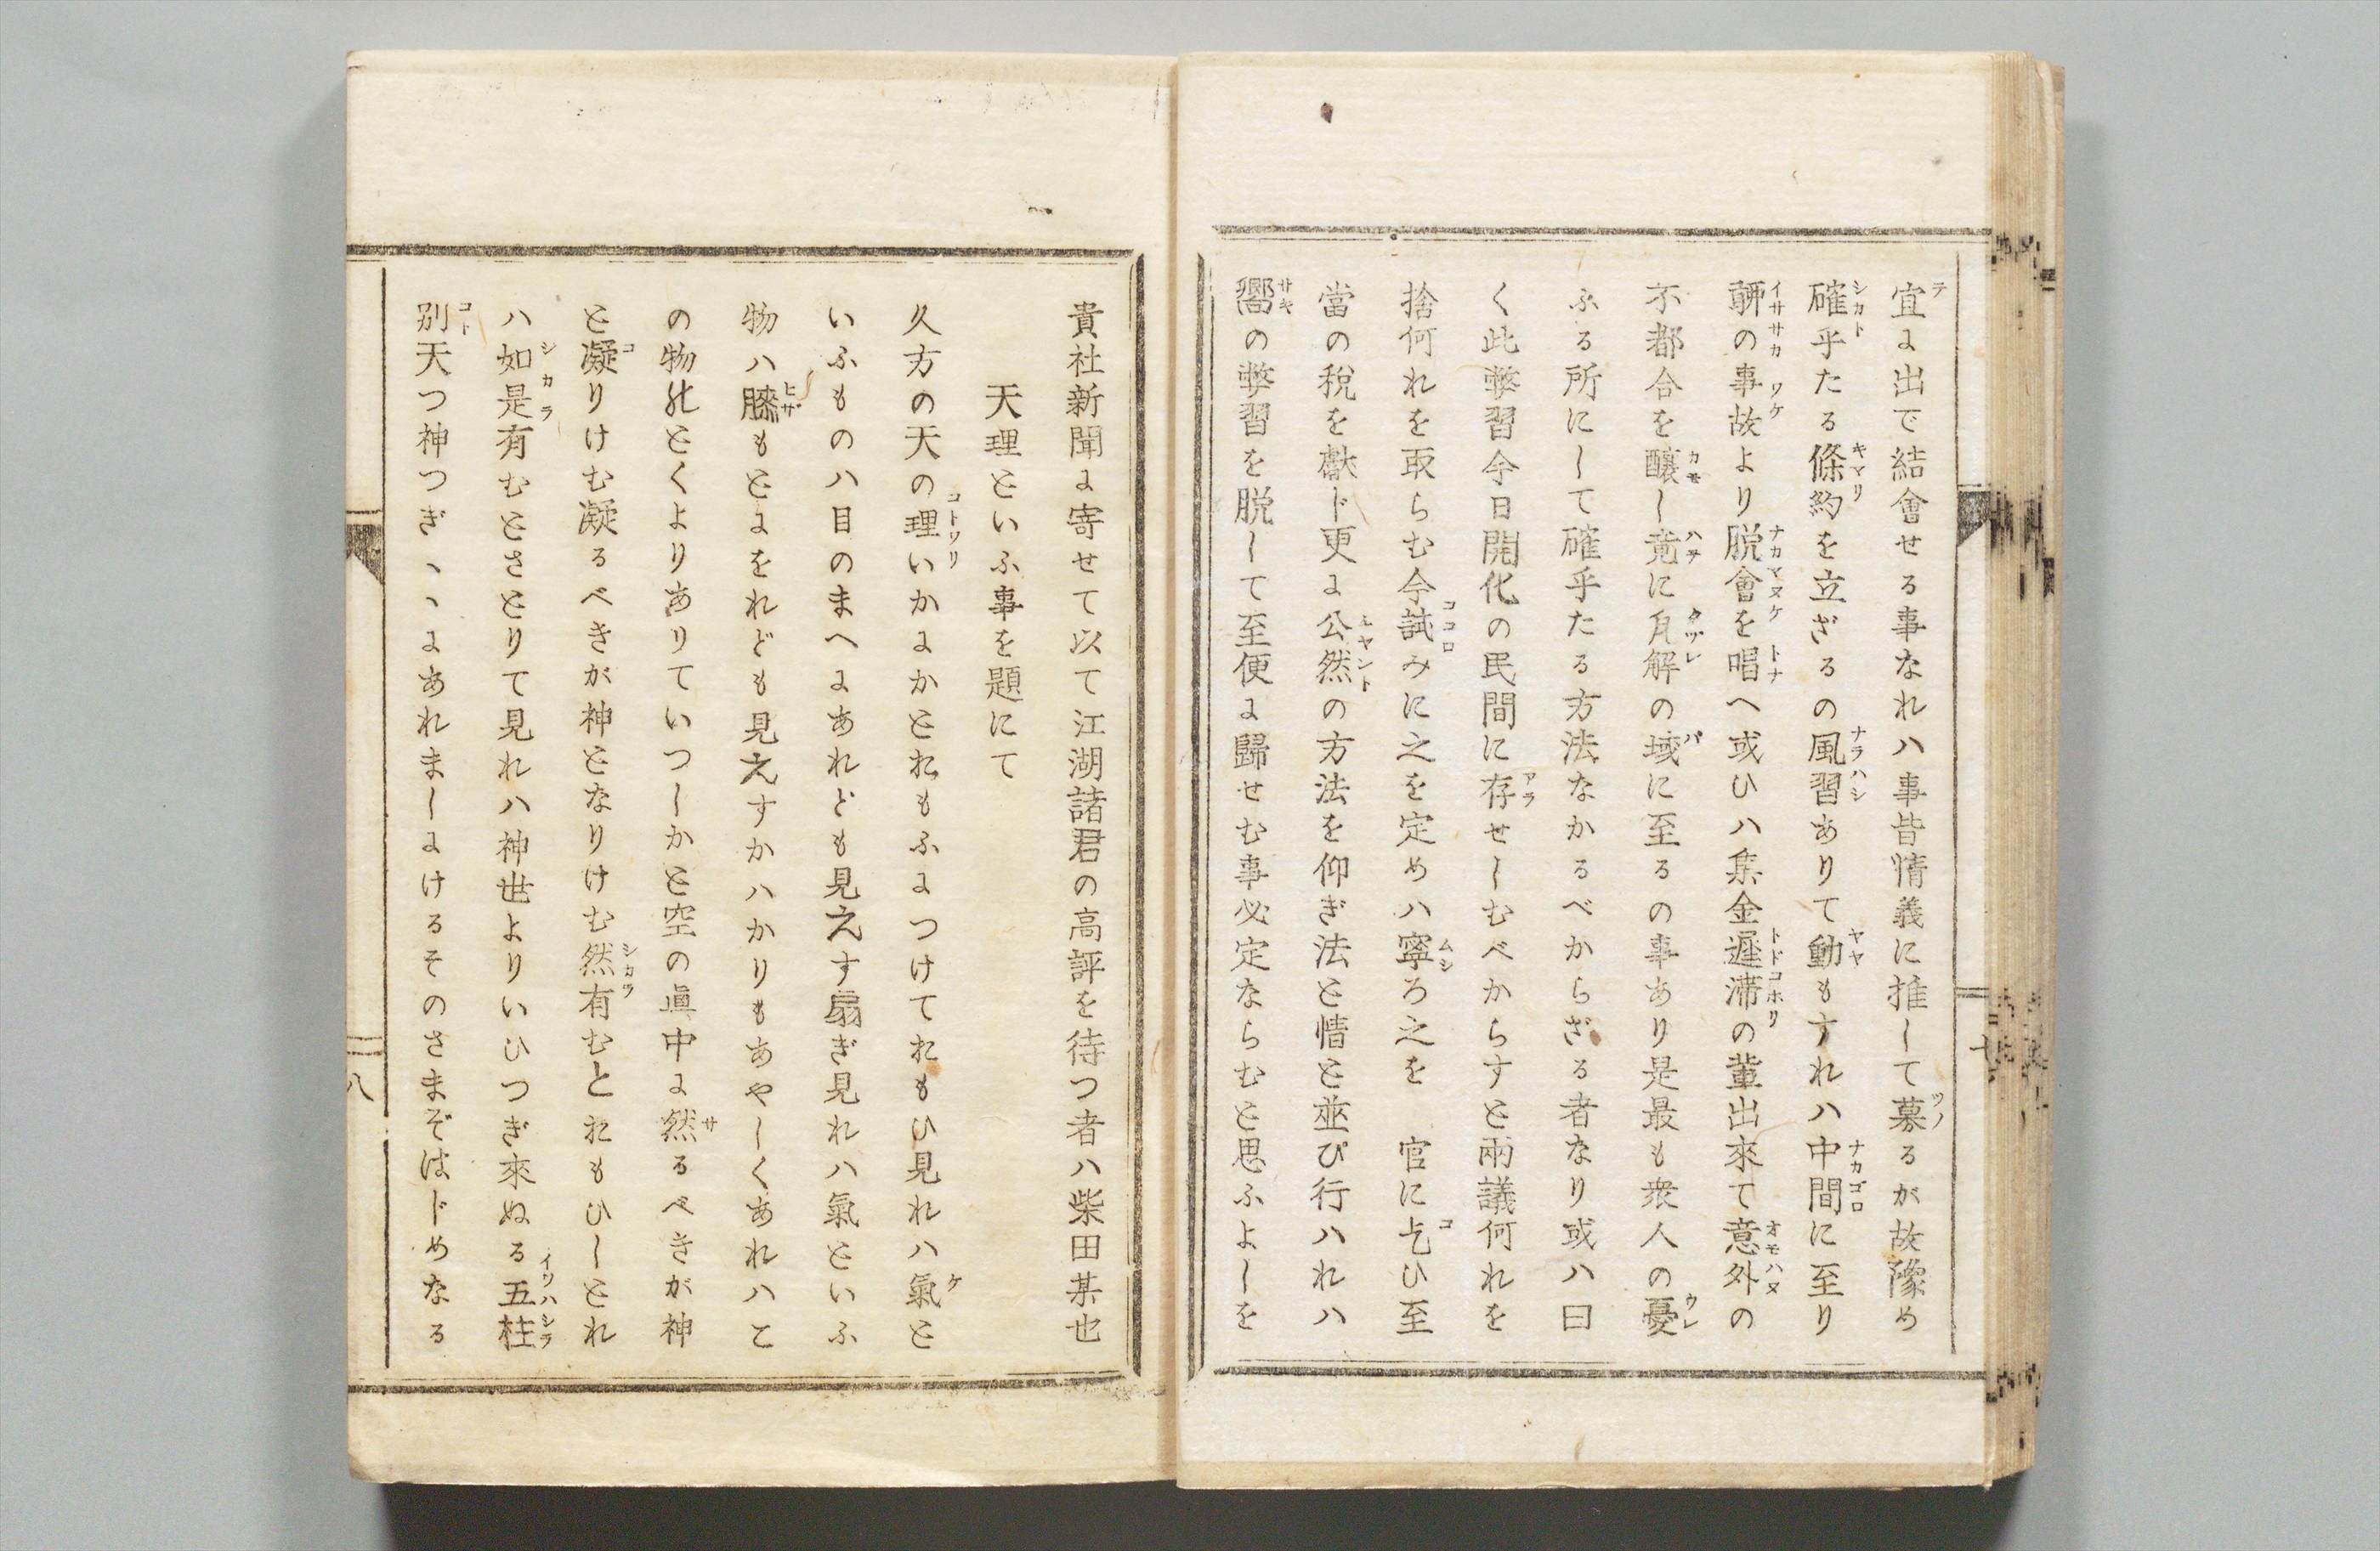 宜に出で結會せる事なれハ事皆情義に推して募るが故豫め
確乎たる條約を立ざるの風習ありて動もすれハ中間に至り
聊の事故より脱會を唱へ或ひハ集金遲滯の輩出來て意外の
不都合を釀し竟に瓦解の域に至るの事あり是最も衆人の憂
ふる所にして確乎たる方法なかるべからざる者なり或ハ曰
く此弊習今日開化の民間に存せしむべからすと兩議何れを
捨何れを取らむ今試みに之を定めハ寧ろ之を　官に乞ひ至
當の税を獻じ更に公然の方法を仰ぎ法と情と並び行ハれハ
嚮の弊習を脱して至便に歸せむ事必定ならむと思ふよしを
貴社新聞に寄せて以て江湖諸君の高評を待つ者ハ柴田某也
天理といふ事を題にて
久方の天の理いかにかとおもふにつけておもひ見れハ氣と
いふものハ目のまへにあれども見えす扇ぎ見れハ氣といふ
物ハ膝もとにをれども見えすかハかりもあやしくあれハこ
の物のとくよりありていつしかと空の眞中に然るべきが神
と凝りけむ凝るべきが神となりけむ然有むとおもひしとれ
ハ如是有むとさとりて見れハ神世よりいひつぎ來ぬる五柱
別天つ神つぎヽヽにあれましにけるそのさまぞはじめなる
八